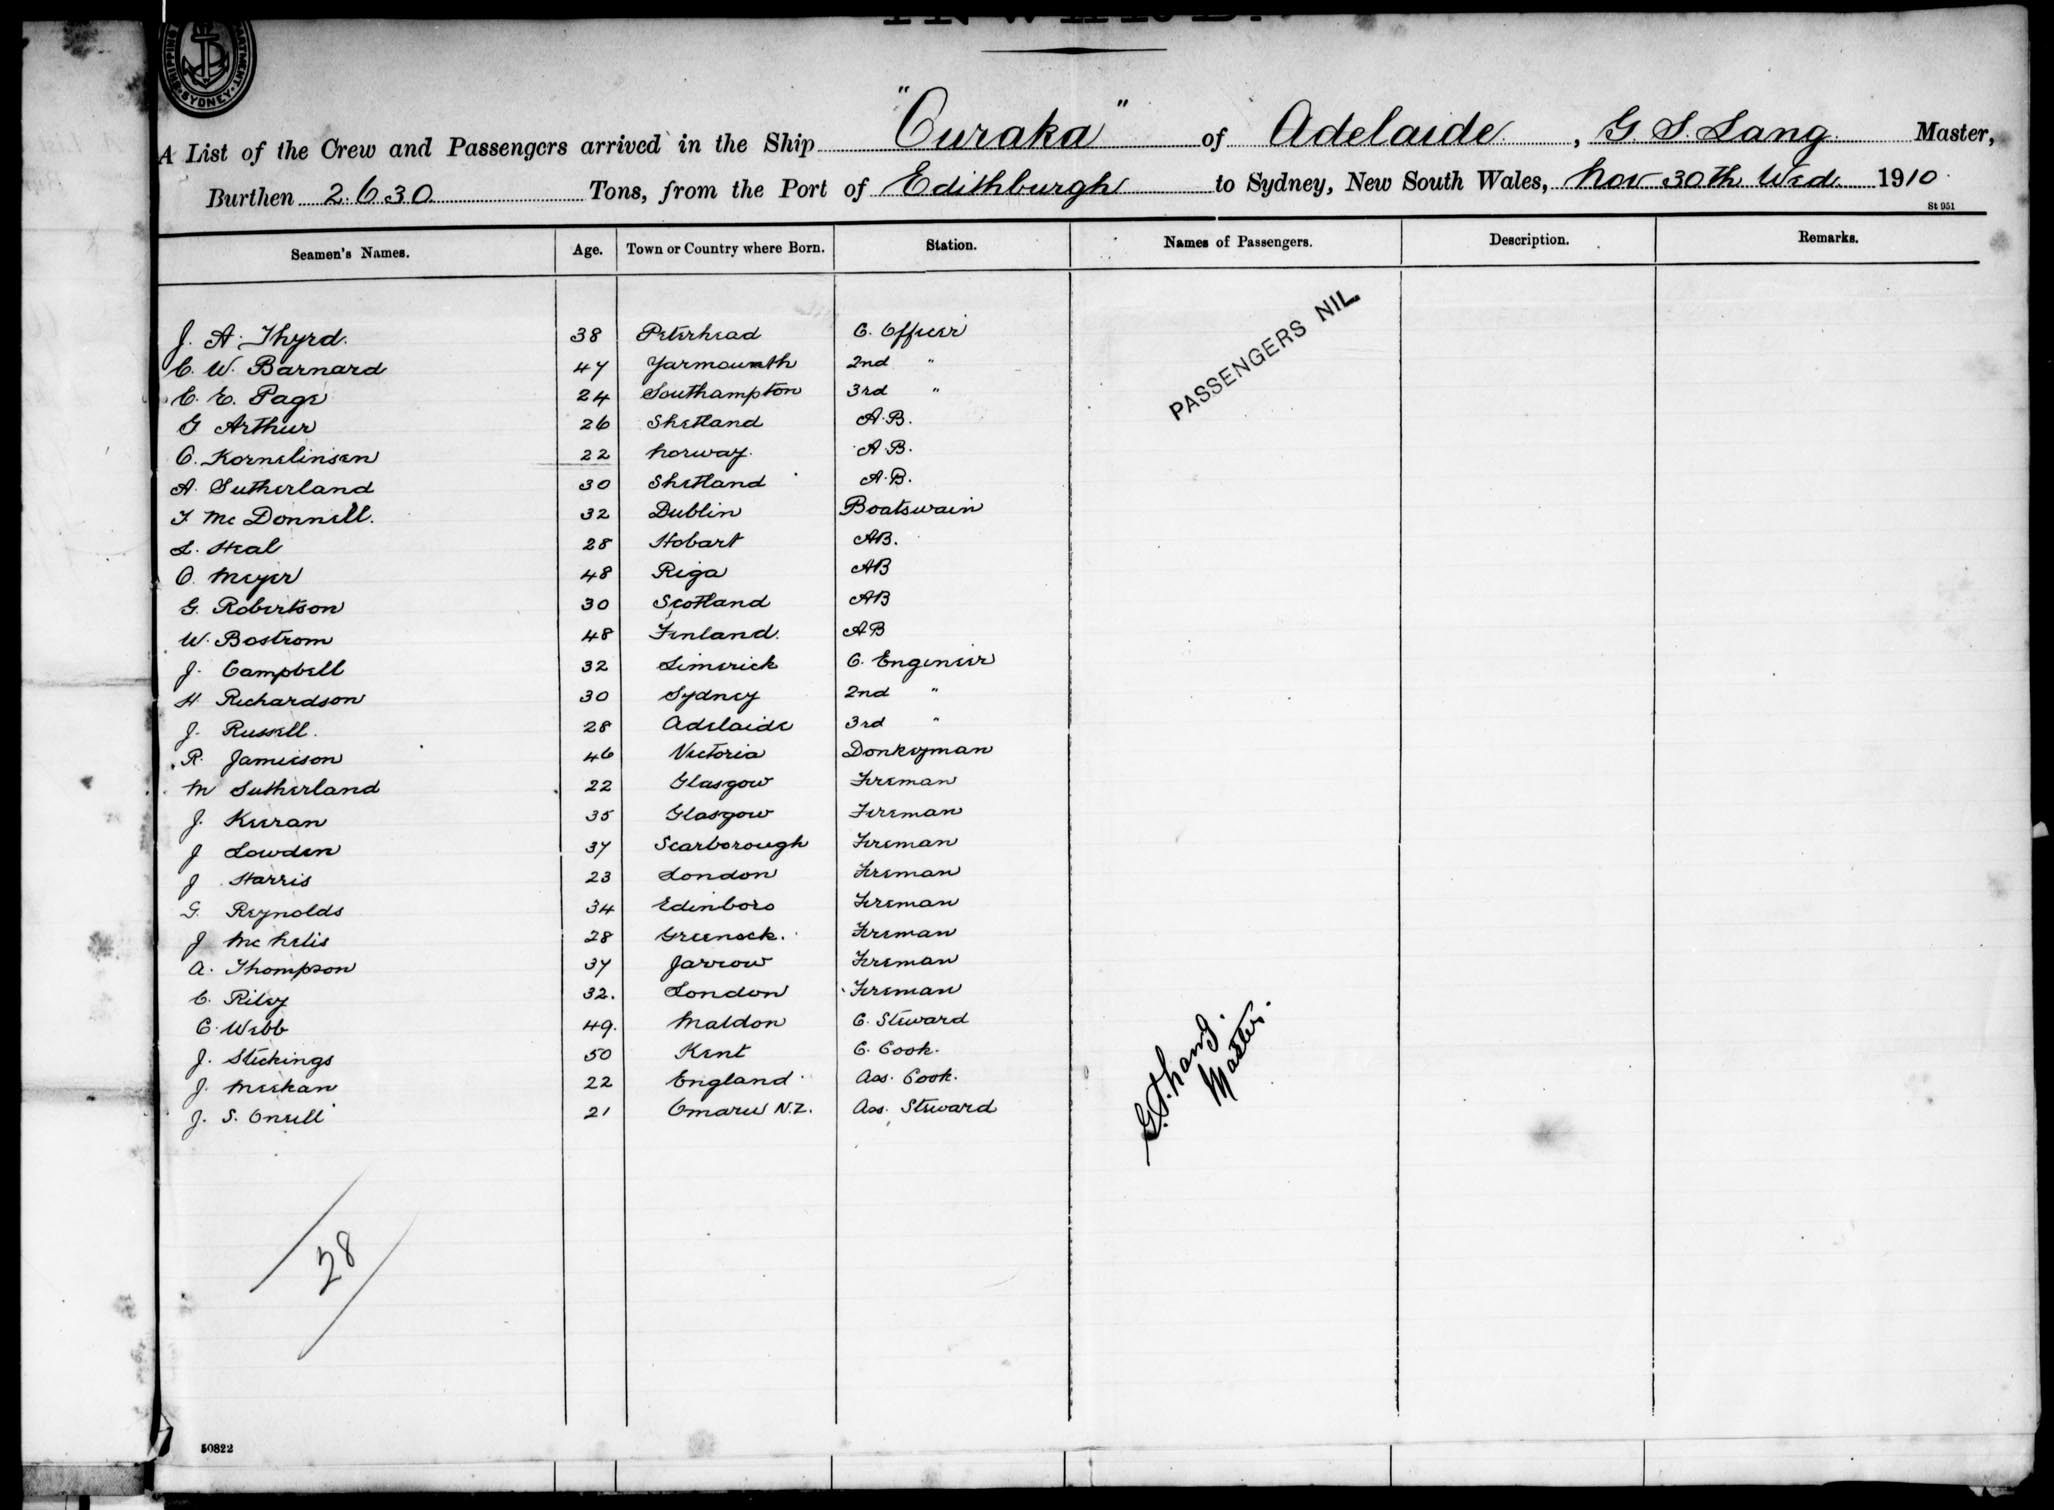 INWARD.
SHIPPING DEPARTMENT SYDNEY
A List of the Crew and Passengers arrived in the Ship "Ouraka" of Adelaide, G. S. Lang Master,
Burthen 2.630 Tons, from the Port of Edithburgh to Sydney, New South Wales, Nov 30th Wed. 1910
St 951
Seamen's Names. Age. Town or Country where Born. Station. Names of Passengers. Description. Remarks.
PASSENGERS NIL
J. A. Thyrd. 38 Peterhead C. Officer
C. W. Barnard 47 Yarmouth 2nd "
C. E. Page 24 Southampton 3rd "
G Arthur 26 Shetland A.B.
O. Kornelinsen 22 Norway. A.B.
A. Sutherland 30 Shetland A.B.
F Mc Donnell. 32 Dublin Boatswain
L. Heal 28 Hobart AB.
O. Meyer 48 Riga AB
G. Robertson 30 Scotland AB
W. Bostrom 48 Finland. AB
J. Campbell 32 Limerick C. Engineer
H Richardson 30 Sydney 2nd "
J. Russell. 28 Adelaide 3rd "
R. Jamieson 46 Victoria Donkeyman
M Sutherland 22 Glasgow Fireman
J. Kieran 35 Glasgow Fireman
J Lowden 37 Scarborough Fireman
J Harris 23 London Fireman
G. Reynolds 34 Edinboro Fireman
J Mc Nelis 28 Greenock. Fireman
A. Thompson 37 Jarrow Fireman
C. Riley 32. London Fireman
C. Webb 49. Maldon C. Steward
J. Stickings 50 Kent C. Cook.
J. Meekan 22 England Ass. Cook.
J. S. Oneill 21 Omaru N.Z. Ass. Steward
G. S. Lang.
Master.
28
50822